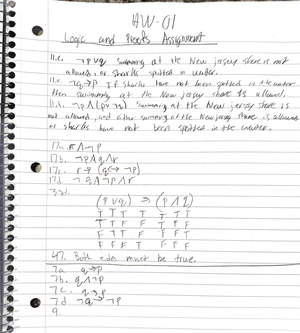 HW-01
Logic and Proofs Assignment
11.c. ¬p∨q Swimming at the New Jersey shore is not
allowed, or sharks spotted in water.
11.e. ¬q→p If sharks have not been spotted in the water
then swimming at the New Jersey shore is allowed.
11.h. ¬p∧(p∨¬q) Swimming at the New Jersey shore is
not allowed, and either swimming at the New Jersey shore is allowed
or sharks have not been spotted in the water.
17a. r∧¬p
17b. ¬p∧q∧r
17c. r→(q↔¬p)
17d ¬q∧¬p∧r
33d.
(p∨q) ⇒ (p∧q)
T T T T T T T
T T F F T F F
F T T F F F T
F F F T F F F
47. Both sides must be true.
7a q→p
7b. q∧¬p
7c. q→p
7d ¬q→¬p
9.